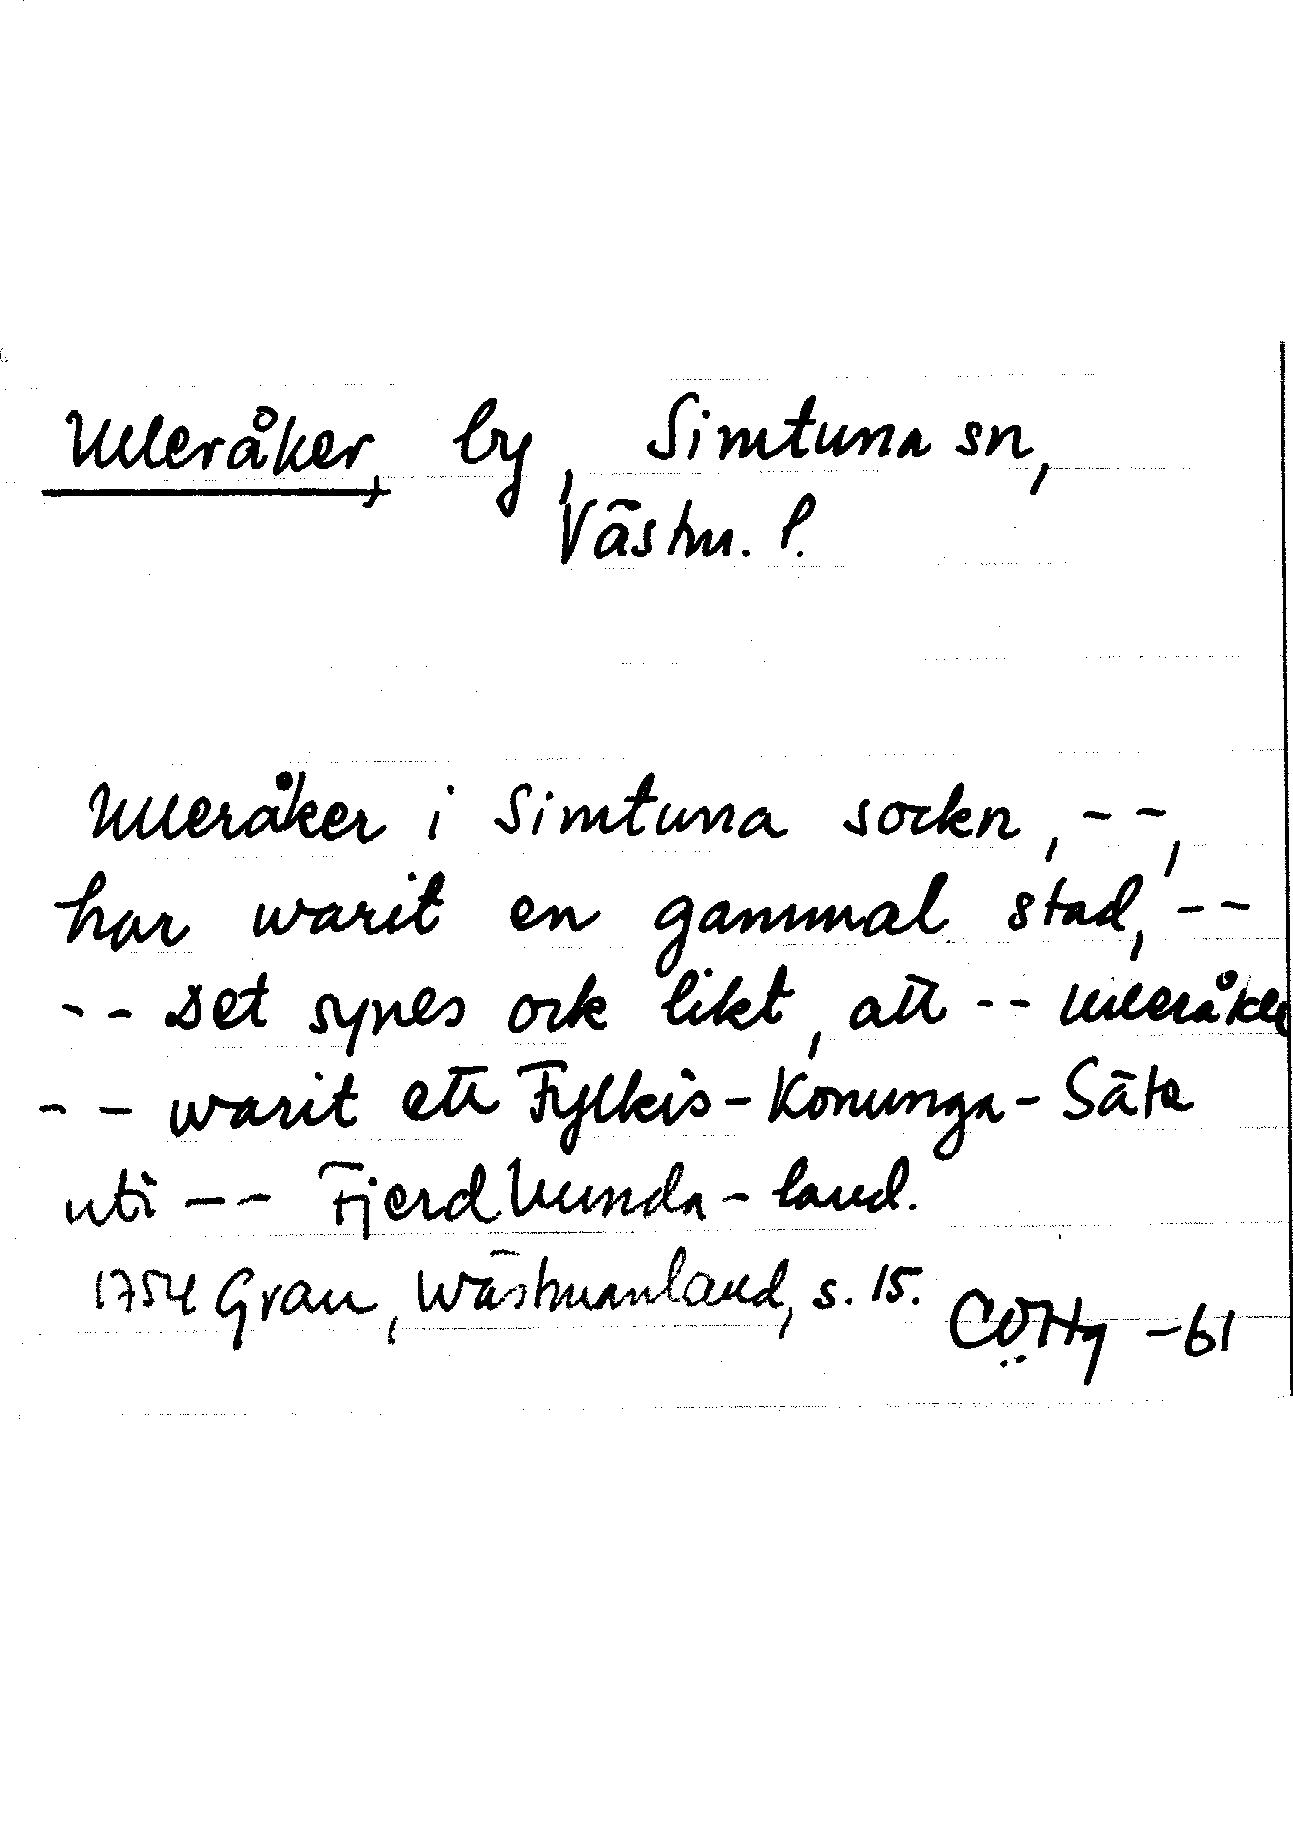 Ulleråker, by, Simtuna sn,
Västm. l.
Ulleråker i Simtuna sockn, --,
har warit en gammal stad, --
-- Det synes ock likt, att -- Ulleråker
-- warit ett Fylkis-Konunga-Säte
uti -- Fjerdhunda-land.
1754 Grau, Wästmanland, s. 15.
CÖHg -61